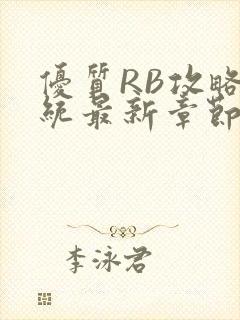 優質RB攻略
統最新章節
李泳君